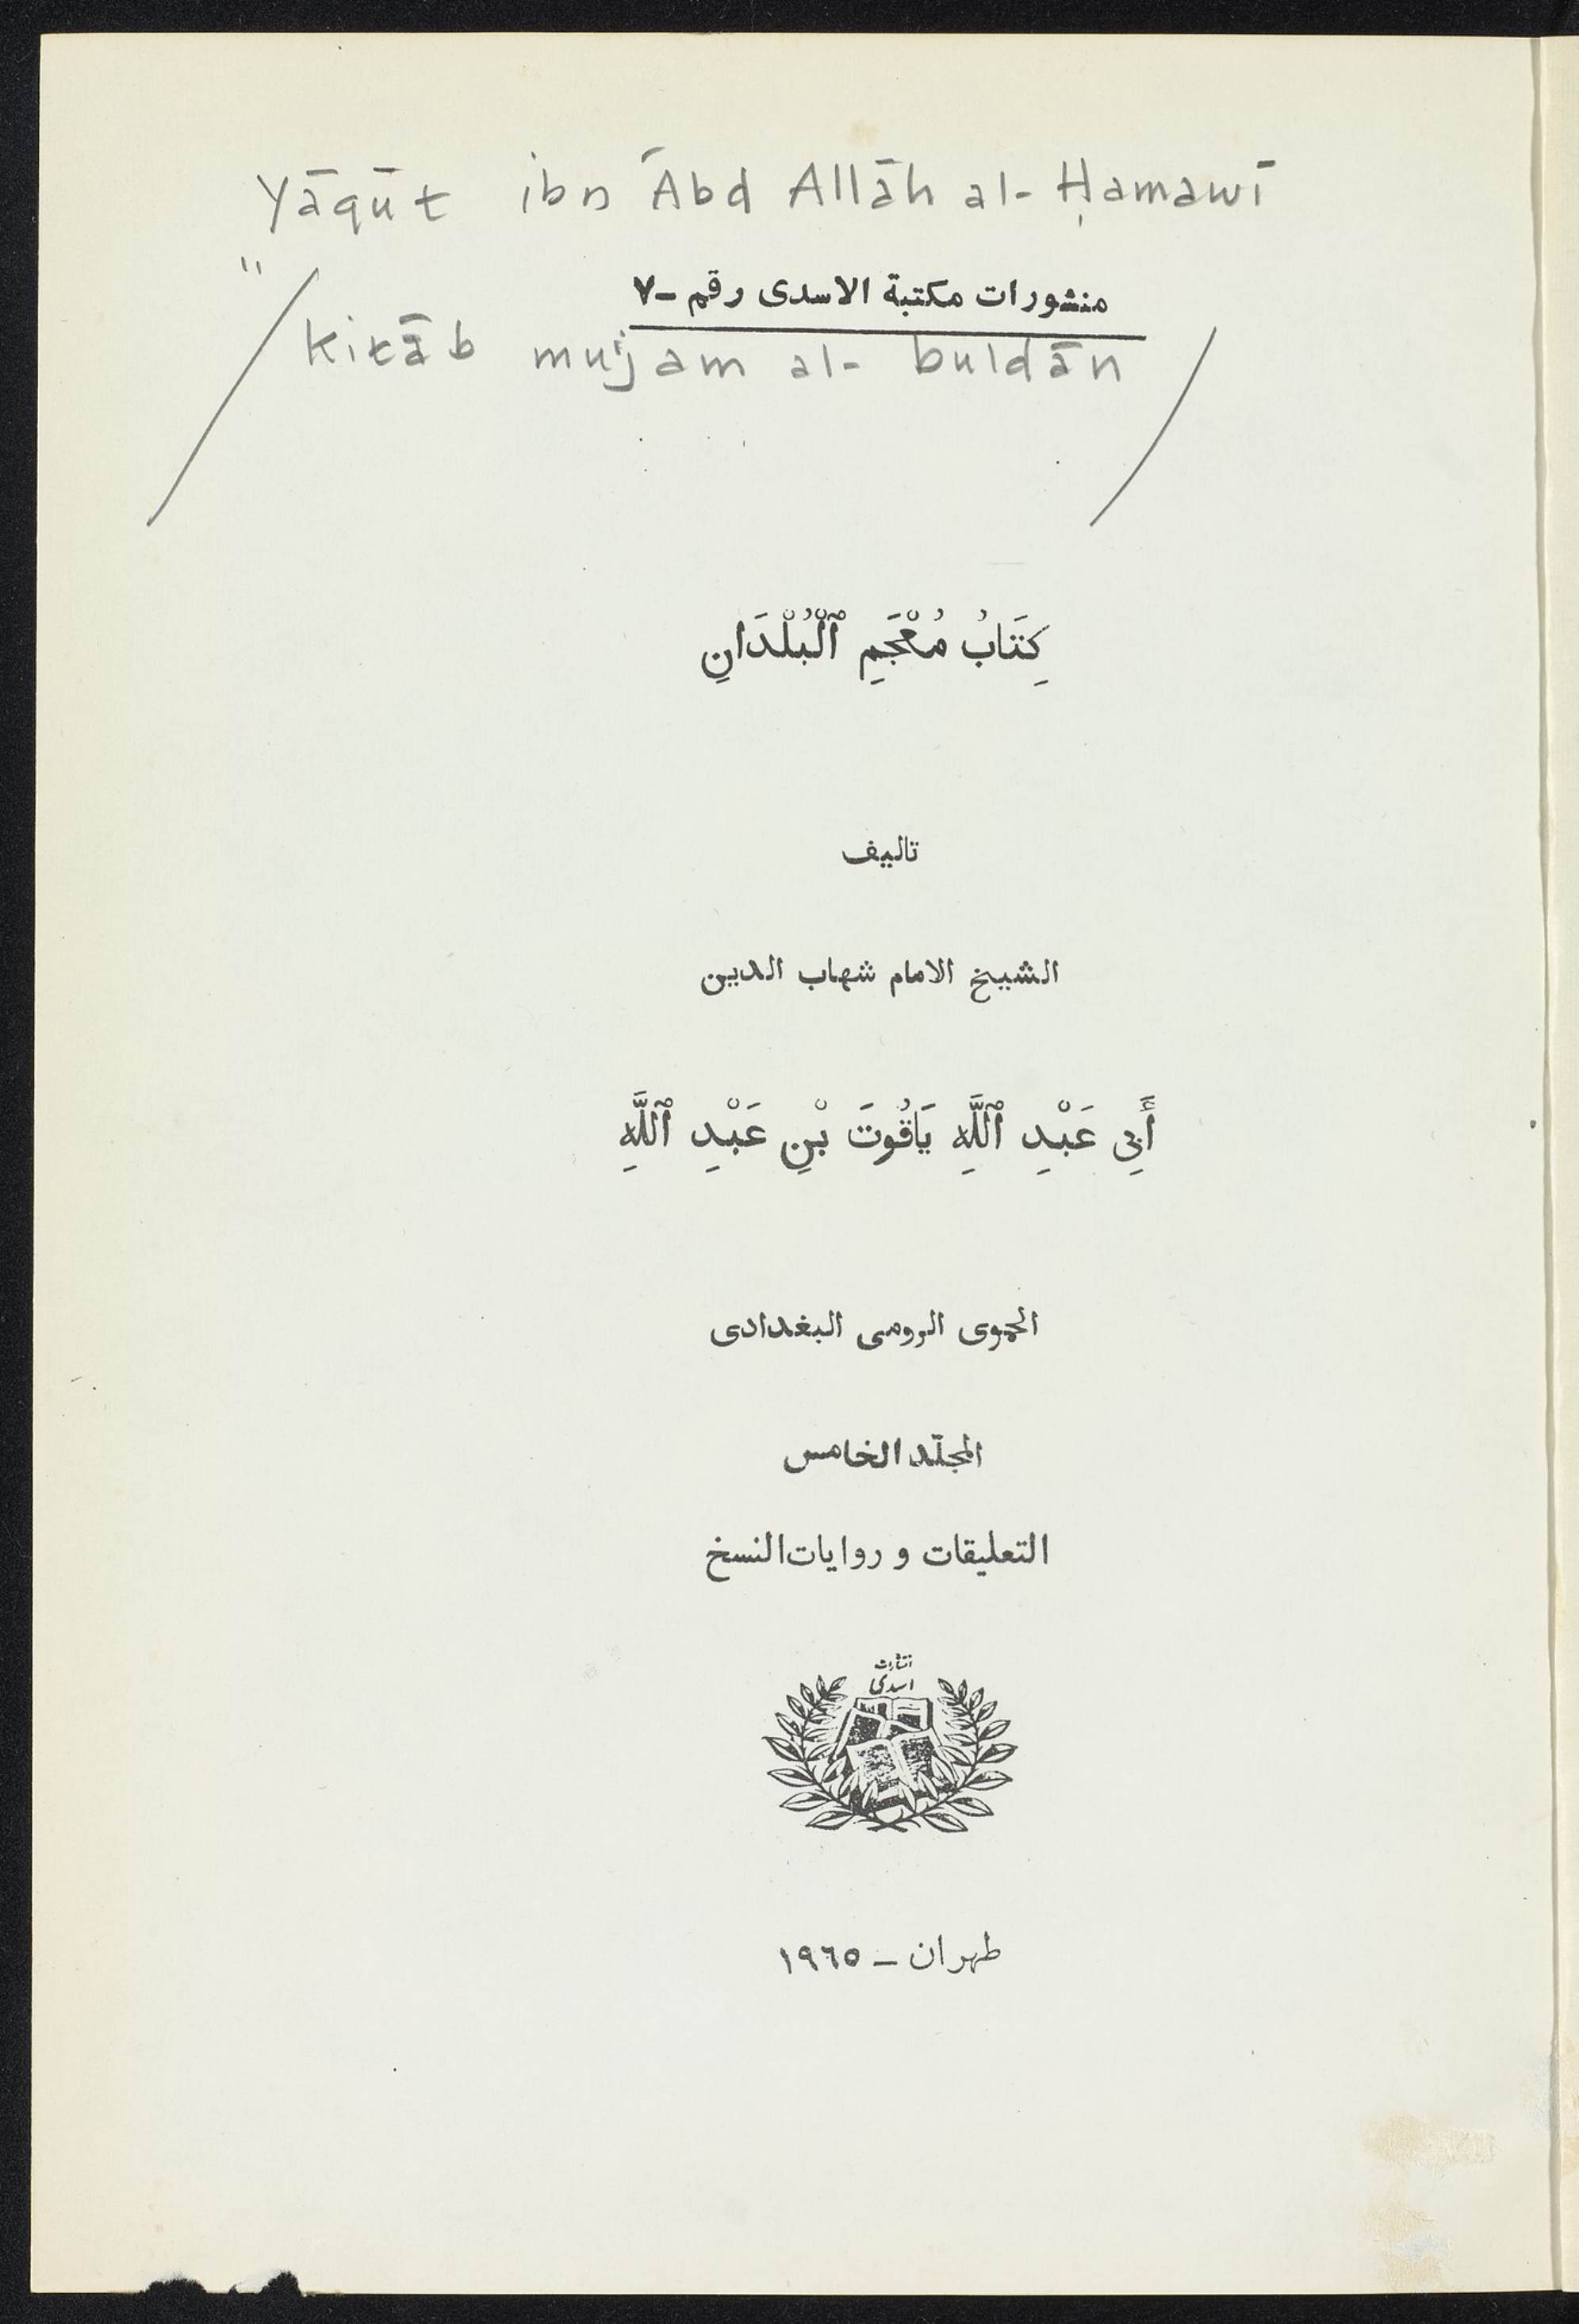 Yāqūt ibn Ābd Allāh al-Ḥamawī
منشورات مكتبة الاسدى رقم -٧
"/ Kitāb mu'jam al- buldān /
كِتَابُ مُعْجَمِ ٱلْبُلْدَانِ
تاليف
الشيخ الامام شهاب الدين
أَبِي عَبْدِ ٱللَّهِ يَاقُوتَ بْنِ عَبْدِ ٱللَّهِ
الحموى الرومى البغدادى
المجلّد الخامس
التعليقات و روايات النسخ
انتشارات
اسدى
طهران – ١٩٦٥